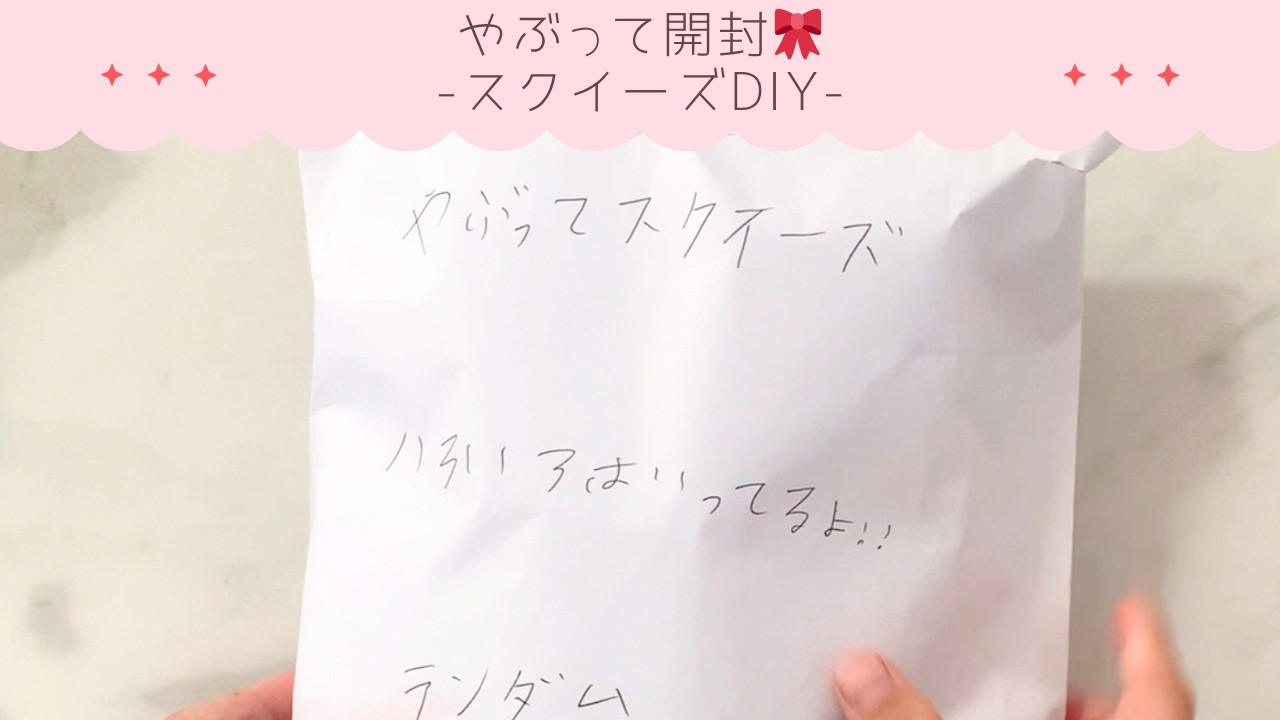 やぶって開封🎀
-スクイーズDIY-
やぶってスクイーズ
いろいろはいってるよ!!
ランダム